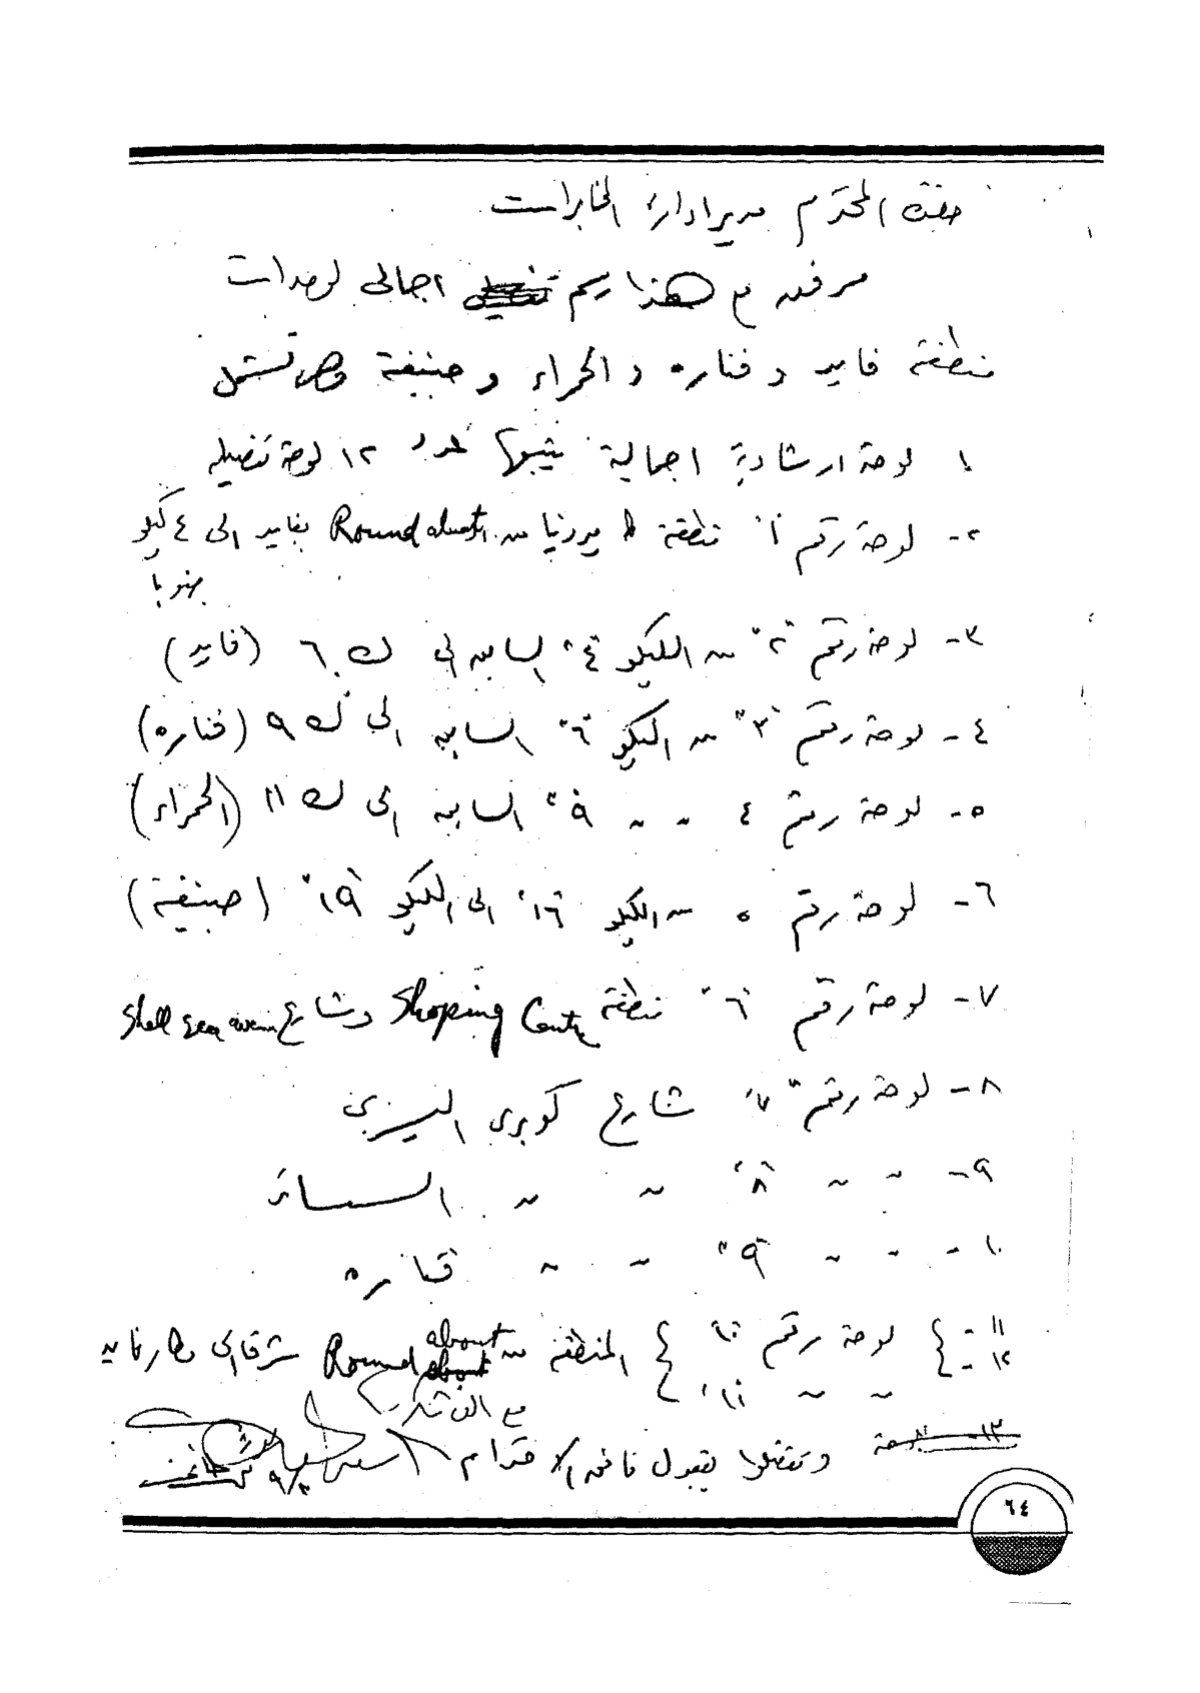 حضرة المحترم مدير ادارة المخابرات
مرفق مع هذا رسم اجمالى لوحدات
منطقة فايد و فناره و الحمراء و حنيفة وهى تشتمل
١ لوحة ارشادية اجمالية يتبعها عدد ١٢ لوحة تفصيلية
٢- لوحة رقم "١" منطقة من Round about بفايد الى ٤ كيلو
جنوبا
٣- لوحة رقم "٢" من الكيلو "٤" السابق الى ك ٦ (فايد)
٤- لوحة رقم "٣" من الكيلو "٦" السابق الى ك ٩ (فناره)
٥- لوحة رقم ٤ " " "٩" السابق الى ك ١١ (الحمراء)
٦- لوحة رقم ٥ من الكيلو "١٦" الى الكيلو "١٩" (حنيفة)
٧- لوحة رقم "٦" منطقة Shoping Cente وشارع Shell
٨- لوحة رقم "٧" شارع كوبرى البنزين
٩- " " "٨" " "
١٠- " " "٩" " " فناره
١١- لوحة رقم "١٠" المنطقة من Round about شرقا الى مطار فايد
١٢- " " "١١"
وتفضلوا بقبول فائق الاحترام
٦٤